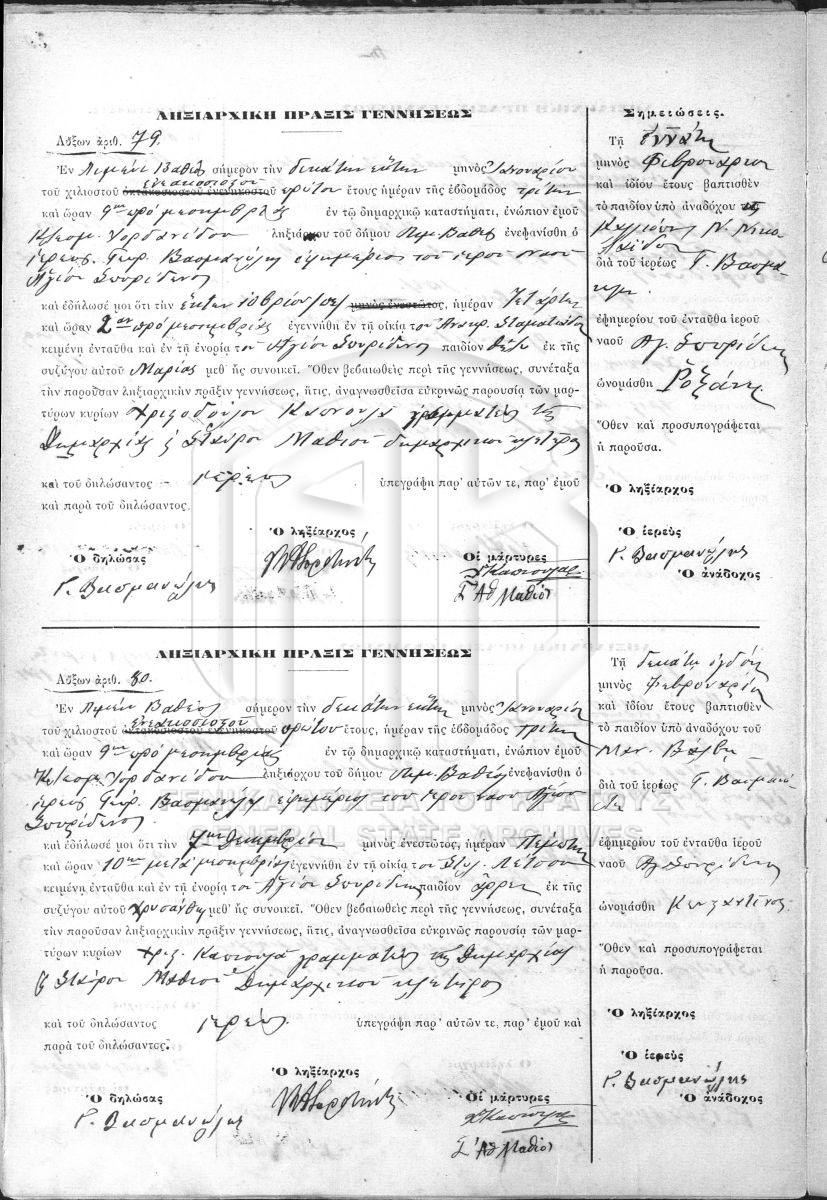 ΛΗΞΙΑΡΧΙΚΗ ΠΡΑΞΙΣ ΓΕΝΝΗΣΕΩΣ
Αὔξων ἀριθ. 79.
Ἐν Λιμένι Βαθέος σήμερον τὴν δεκάτην ἕκτην μηνὸς Ἰανουαρίου
ἐνεακοσιοστοῦ
τοῦ χιλιοστοῦ ὀκτακοσιοστοῦ ἐνενηκοστοῦ πρώτου ἔτους ἡμέραν τῆς ἑβδομάδος τρίτην
καὶ ὥραν 9ην πρὸ μεσημβρίας ἐν τῷ δημαρχικῷ καταστήματι, ἐνώπιον ἐμοῦ
Ἰορδανίδου ληξιάρχου τοῦ δήμου Λιμ. Βαθέος ἐνεφανίσθη ὁ
ἱερεὺς Γεώρ. Βασμανώλης ἐφημέριος τοῦ ἱεροῦ ναοῦ
Ἁγίου Σπυρίδωνος
καὶ ἐδήλωσέ μοι ὅτι τὴν ἕκτην μηνὸς ἐνεστῶτος, ἡμέραν Τετάρτην
καὶ ὥραν 2αν πρὸ μεσημβρίας ἐγεννήθη ἐν τῇ οἰκίᾳ τοῦ Σταματιάδου
κειμένῃ ἐνταῦθα καὶ ἐν τῇ ἐνορίᾳ τοῦ Ἁγίου Σπυρίδωνος παιδίον θῆλυ ἐκ τῆς
συζύγου αὐτοῦ Μαρίας μεθ' ἧς συνοικεῖ. Ὅθεν βεβαιωθεὶς περὶ τῆς γεννήσεως, συνέταξα
τὴν παροῦσαν ληξιαρχικὴν πρᾶξιν γεννήσεως, ἥτις, ἀναγνωσθεῖσα εὐκρινῶς παρουσίᾳ τῶν μαρ-
τύρων κυρίων Χριστοδούλου Καπνουλᾶ γραμματέως τῆς
Δημαρχίας Σταύρου Μαθιοῦ δημαρχικοῦ κλητῆρος
καὶ τοῦ δηλώσαντος ἱερέως ὑπεγράφη παρ' αὐτῶν τε, παρ' ἐμοῦ
καὶ παρὰ τοῦ δηλώσαντος.
Ὁ δηλώσας
Γ. Βασμανώλης
Ὁ ληξίαρχος
Οἱ μάρτυρες
Σ' Αθ Μαθιός
Σημειώσεις.
Τῇ ἐννάτῃ
μηνὸς Φεβρουαρίου
καὶ ἰδίου ἔτους βαπτισθὲν
τὸ παιδίον ὑπὸ ἀναδόχου
Καλλιόπης Ν. Νικο
λαΐδου
διὰ τοῦ ἱερέως Γ. Βασμα
νώλη
ἐφημερίου τοῦ ἐνταῦθα ἱεροῦ
ναοῦ Ἁγ. Σπυρίδωνος
ὠνομάσθη Ῥοξάνη
Ὅθεν καὶ προσυπογράφεται
ἡ παροῦσα.
Ὁ ληξίαρχος
Ὁ ἱερεὺς
Γ. Βασμανώλης
Ὁ ἀνάδοχος
ΛΗΞΙΑΡΧΙΚΗ ΠΡΑΞΙΣ ΓΕΝΝΗΣΕΩΣ
Αὔξων ἀριθ. 80.
Ἐν Λιμένι Βαθέος σήμερον τὴν δεκάτην ἕκτην μηνὸς Ἰανουαρίου
ἐνεακοσιοστοῦ
τοῦ χιλιοστοῦ ὀκτακοσιοστοῦ ἐνενηκοστοῦ πρώτου ἔτους, ἡμέραν τῆς ἑβδομάδος τρίτην
καὶ ὥραν 9ην πρὸ μεσημβρίας ἐν τῷ δημαρχικῷ καταστήματι, ἐνώπιον ἐμοῦ
Ἰορδανίδου ληξιάρχου τοῦ δήμου Λιμ. Βαθέος ἐνεφανίσθη ὁ
ἱερεὺς Γεώρ. Βασμανώλης ἐφημέριος τοῦ ἱεροῦ ναοῦ Ἁγίου
Σπυρίδωνος
καὶ ἐδήλωσέ μοι ὅτι τὴν 7ην Δεκεμβρίου μηνὸς ἐνεστῶτος, ἡμέραν Πέμπτην
καὶ ὥραν 10ην μετὰ μεσημβρίαν ἐγεννήθη ἐν τῇ οἰκίᾳ τοῦ Λέτσου
κειμένῃ ἐνταῦθα καὶ ἐν τῇ ἐνορίᾳ τοῦ Ἁγίου Σπυρίδωνος παιδίον ἄρρεν ἐκ τῆς
συζύγου αὐτοῦ Χρυσάνθης μεθ' ἧς συνοικεῖ. Ὅθεν βεβαιωθεὶς περὶ τῆς γεννήσεως, συνέταξα
τὴν παροῦσαν ληξιαρχικὴν πρᾶξιν γεννήσεως, ἥτις, ἀναγνωσθεῖσα εὐκρινῶς παρουσίᾳ τῶν μαρ-
τύρων κυρίων Χριστ. Καπνουλᾶ γραμματέως τῆς Δημαρχίας
Σταύρου Μαθιοῦ Δημαρχικοῦ κλητῆρος
καὶ τοῦ δηλώσαντος ἱερέως ὑπεγράφη παρ' αὐτῶν τε, παρ' ἐμοῦ καὶ
παρὰ τοῦ δηλώσαντος.
Ὁ δηλώσας
Γ. Βασμανώλης
Ὁ ληξίαρχος
Οἱ μάρτυρες
Σ' Αθ Μαθιός
Τῇ δεκάτῃ ὀγδόῃ
μηνὸς Φεβρουαρίου
καὶ ἰδίου ἔτους βαπτισθὲν
τὸ παιδίον ὑπὸ ἀναδόχου τοῦ
Μαν. Βάλβη
διὰ τοῦ ἱερέως Γ. Βασμανώ
λη
ἐφημερίου τοῦ ἐνταῦθα ἱεροῦ
ναοῦ Ἁγ. Σπυρίδωνος
ὠνομάσθη Κωνσταντῖνος
Ὅθεν καὶ προσυπογράφεται
ἡ παροῦσα.
Ὁ ληξίαρχος
Ὁ ἱερεὺς
Γ. Βασμανώλης
Ὁ ἀνάδοχος
ΓΕΝΙΚΑ ΑΡΧΕΙΑ ΤΟΥ ΚΡΑΤΟΥΣ
GENERAL STATE ARCHIVES